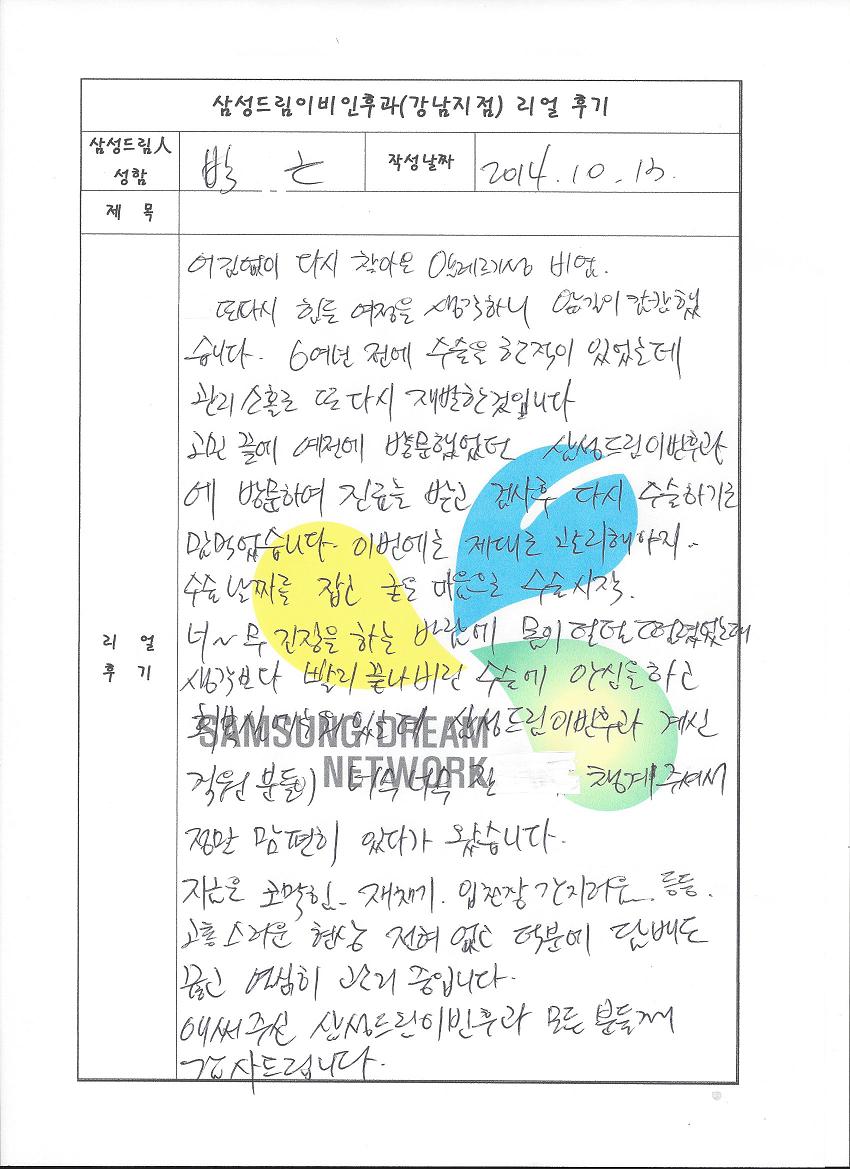 삼성드림이비인후과(강남지점) 리얼 후기
삼성드림人
성함
박
작성날짜
2014.10.13.
제 목
리 얼
후 기
어김없이 다시 찾아온 알레르기성 비염.
또다시 힘든 여정을 생각하니 앞길이 캄캄했
습니다. 6여년 전에 수술을 한적이 있었는데
관리 소홀로 또 다시 재발한것입니다
고민 끝에 예전에 방문했었던 삼성드림이비인후과
에 방문하여 진료를 받고 검사후 다시 수술하기로
맘먹었습니다. 이번에는 제대로 관리해야지.
수술 날짜를 잡고 굳은 마음으로 수술시작.
너~무 긴장을 하는 바람에 몸이 덜덜 떨렸었는데
생각보다 빨리 끝나버린 수술에 안심을하고
있는데 삼성드림이비인후과 계신
직원 분들이 너무 너무 잘 챙겨주셔서
정말 맘 편히 있다가 왔습니다.
지금은 코막힘. 재채기. 입천장 간지러움. 등등.
고통스러운 현상 전혀 없고 덕분에 담배도
끊고 열심히 관리 중입니다.
애써주신 삼성드림이비인후과 모든 분들께
감사드립니다.
SAMSUNG DREAM
NETWORK